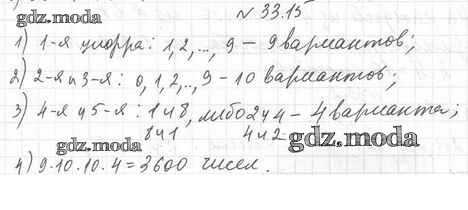 gdz.moda
№ 33.15
1) 1-я цифра: 1,2,.., 9 - 9 вариантов;
2) 2-я и 3-я: 0,1,2,.., 9 - 10 вариантов;
3) 4-я и 5-я: 1 и 8, либо 2 и 4 - 4 варианта;
8 и 1 4 и 2
gdz.moda gdz.moda
4) 9·10·10·4 = 3600 чисел.